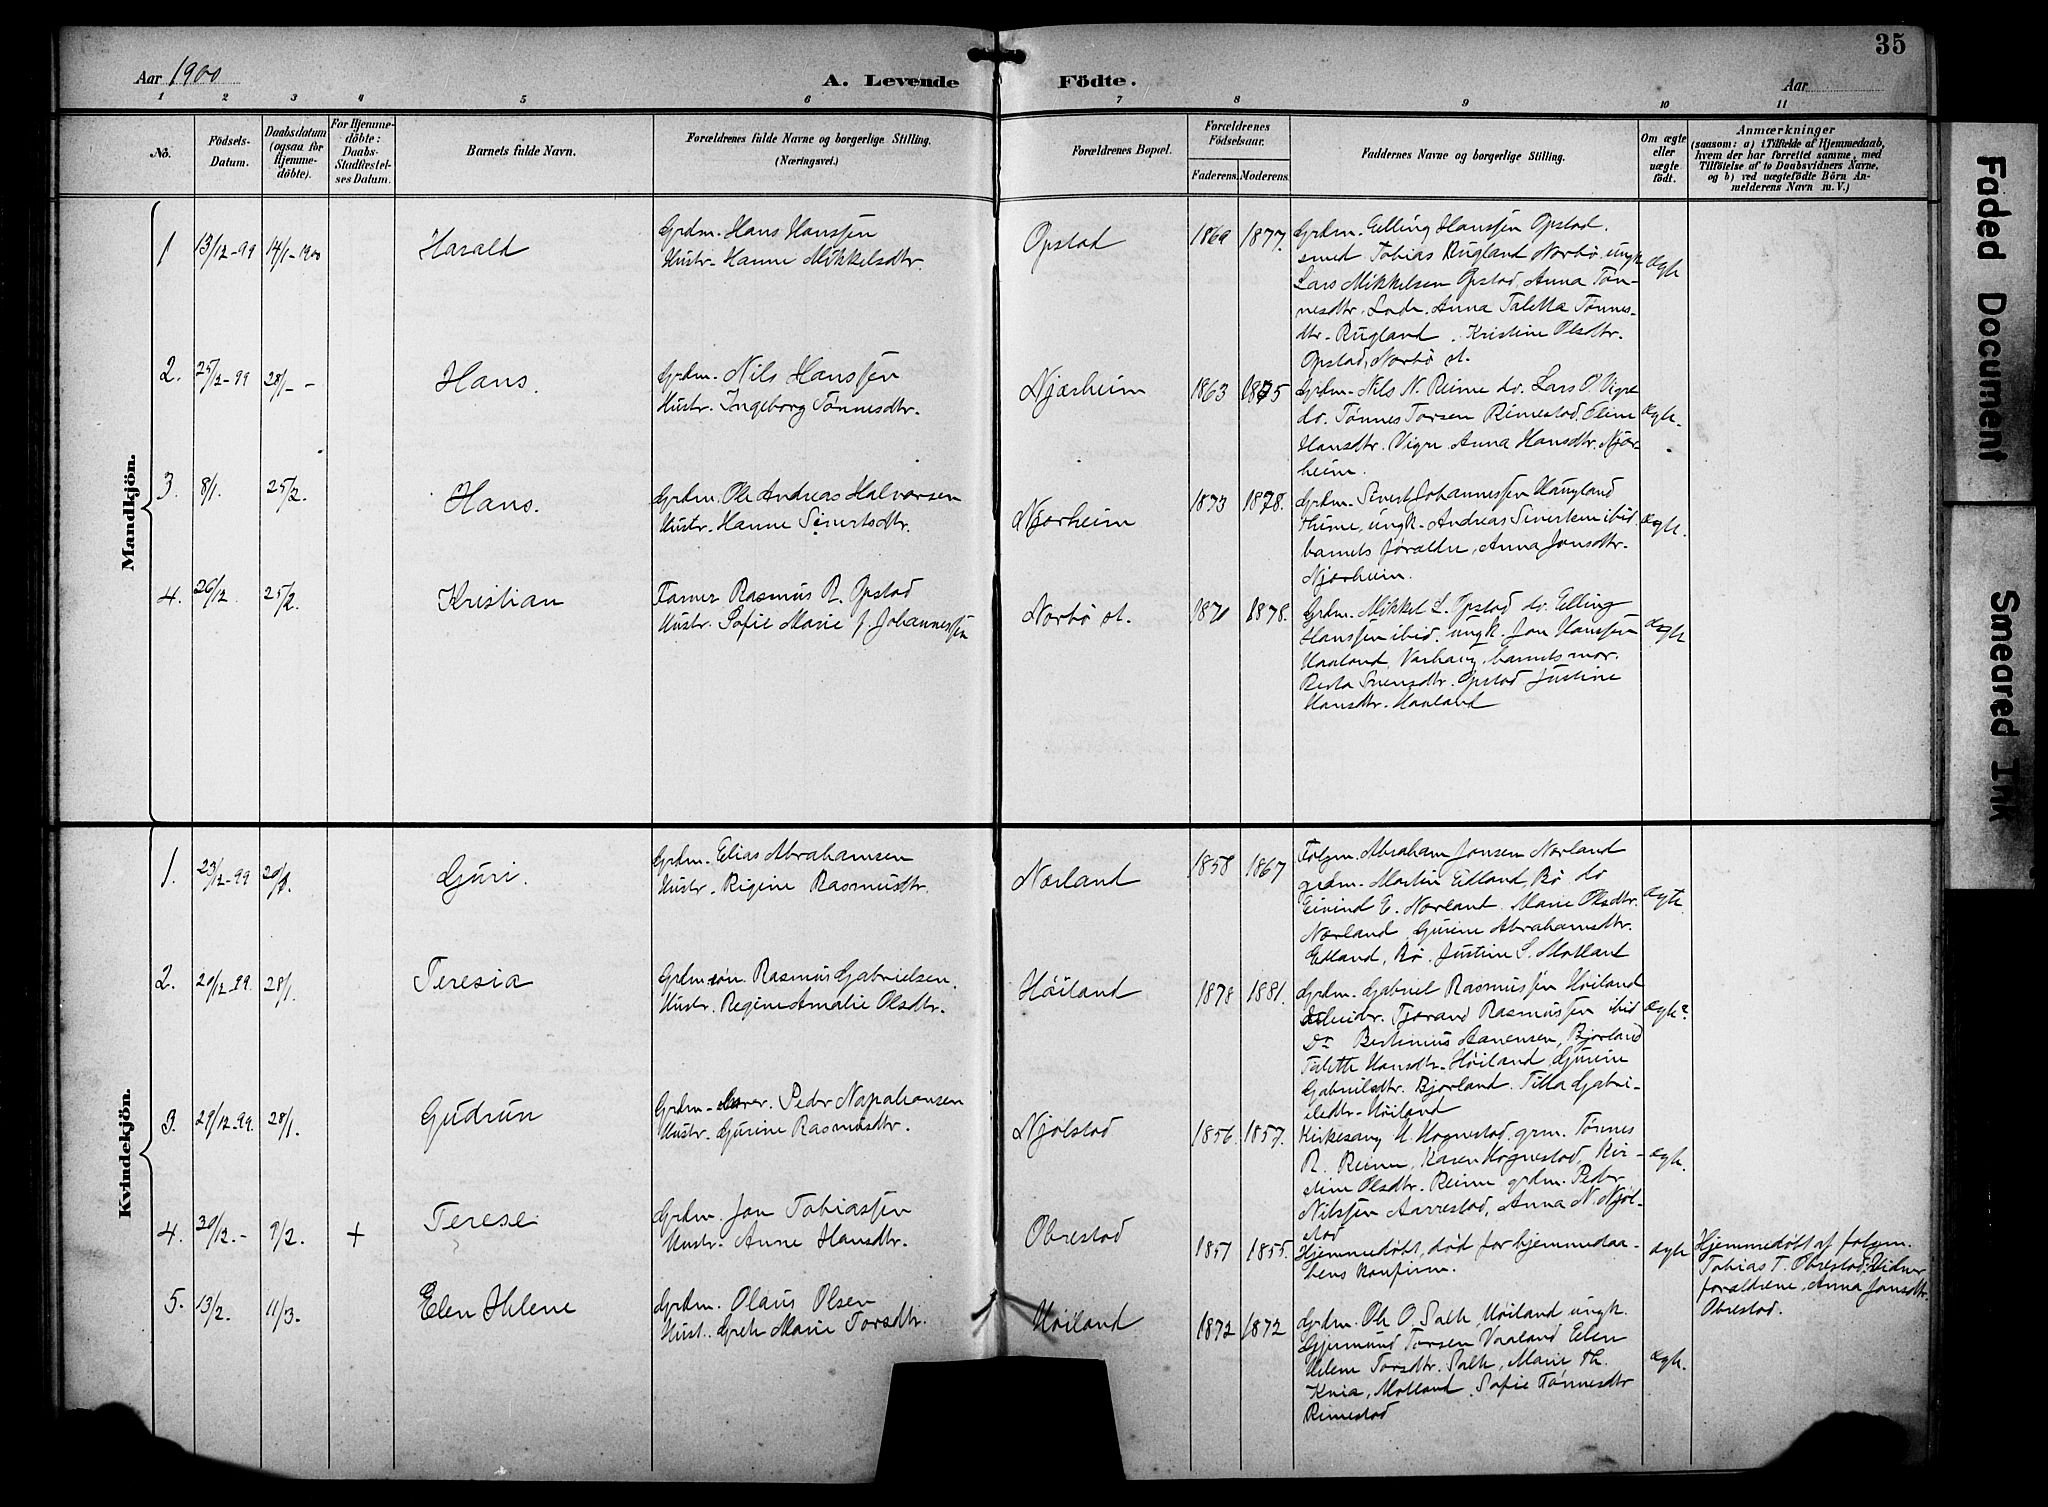 35
Aar 1900
A. Levende Födte.
Aar
1 2 3 4 5 6 7 8 9 10 11
Nö.
Födsels-
Datum.
Daabsdatum
(ogsaa for
Hjemme-
döbte).
For Hjemme-
döbte:
Daabs-
Stadfæstel-
ses Datum.
Barnets fulde Navn.
Forældrenes fulde Navne og borgerlige Stilling.
(Næringsvei.)
Forældrenes Bopæl.
Forældrenes
Födselsaar.
Faderens. Moderens.
Faddernes Navne og borgerlige Stilling.
Om ægte
eller
uægte
födt.
Anmærkninger
(saasom: a) i Tilfælde af Hjemmedaab,
hvem der har forrettet samme, med
Tilföielse af to Daabsvidners Navne,
og b) ved uægtefödte Börn An-
melderens Navn m. V.)
Mandkjön.
1 13/12-99 14/1-1900 Harald
Grdm. Hans Hanssen
Hustr. Hanne Mikkelsdtr.
Opstad 1869 1877.
Grdm. Elling Hanssen Opstad.
smed Tobias Rugland Norbö, ungk.
Lars Mikkelsen Opstad, Anna Tön-
nesdtr. Lode, Anna Taletta Tönnes-
dtr. Rugland, Kristine Olsdtr.
Opstad, Norbö st.
ægte
2. 25/12-99 28/1 - Hans.
Grdm. Nils Hanssen
Hustr. Ingeborg Tönnesdtr.
Njærheim 1863 1875
Grdm. Nils N. Reime do. Lars O. Vigre
do. Tönnes Torsen Rimestad, Eline
Hansdtr. Vigre Anna Hansdtr. Njær-
heim.
ægte.
3. 8/1. 25/2. Hans.
Grdm. Ole Andreas Halvorsen
Hustr. Hanne Sivertsdtr.
Njærheim 1873 1878.
Grdm. Sivert Johannessen Haugland
Thime, ungk. Andreas Sivertsen ibid
barnets forældre, Anna Jonsdtr.
Njærheim.
ægte.
4. 26/12. 25/2. Kristian
Farver Rasmus R. Opstad
Hustr. Sofie Marie f. Johannessen
Norbö st. 1870 1878.
Grdm. Mikkel L. Opstad do. Elling
Hanssen ibid. ungk. Jon Hanssen
Haaland, Varhaug, barnets mor.
Berta Svensdtr. Opstad Justine
Hansdtr. Haaland
ægte
Kvindekjön.
1. 23/12-99 20/1. Gjuri.
Grdm. Elias Abrahamsen
Hustr. Rigine Rasmusdtr.
Nærland 1858 1867
Folgm. Abraham Jonsen Nærland
grdm. Martin Edland, Bö do
Eivind E. Nærland. Marie Olsdtr.
Nærland, Gurine Abrahamsdtr.
Edland, Bö. Justine S. Motland
ægte.
2. 20/12 99. 28/1. Teresia
Grdmsön Rasmus Gabrielsen.
Hustr. Regine Amalie Olsdtr.
Höiland 1878 1881.
Grdm. Gabriel Rasmussen Höiland
Tjerand Rasmussen ibid
Do Bertinius Aanensen, Bjorland
Talette Hansdtr. Höiland Gjurine
Gabrielsdtr. Bjorland. Tilla Gabri-
elsdtr. Höiland
ægte
3. 29/12-99. 28/1. Gudrun
Grdm. Peder Napahansen
Hustr. Gjurine Rasmusdtr.
Njölstad 1856 1857.
Kirkesang H. Hognestad, grm. Tönnes
R. Reime, Karen Hognestad, Kir-
stine Olsdtr. Reime grdm. Peder
Nilssen Aarrestad, Anna N. Njöl-
stad
ægte.
4. 30/12. - 9/2. + Terese
Grdm. Jon Tobiassen
Hustr. Anne Hansdtr.
Obrestad 1851 1855.
Hjemmedöbt, död for hjemmedaa-
bens konfirm.
ægte
Hjemmedöbt af folgm.
Tobias T. Obrestad. Vidner
forældrene, Anna Jonsdtr.
Obrestad.
5. 13/2. 11/3. Elen Helene
Grdm. Olaus Olsen
Hust. Grete Marie Torsdtr.
Höiland 1872 1872
Grdm. Ole O. Salte, Höiland ungk.
Gjermund Torsen Vaaland Elen
Helene Torsdtr. Salte, Marie Th.
Kvia, Motland, Sofie Tönnesdtr
Rimestad
ægte.
Faded Document
Smeared Ink